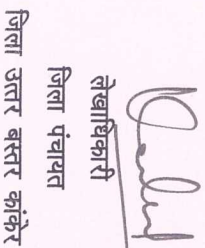 लेखाधिकारी
जिला पंचायत
जिला उत्तर बस्तर कांकेर